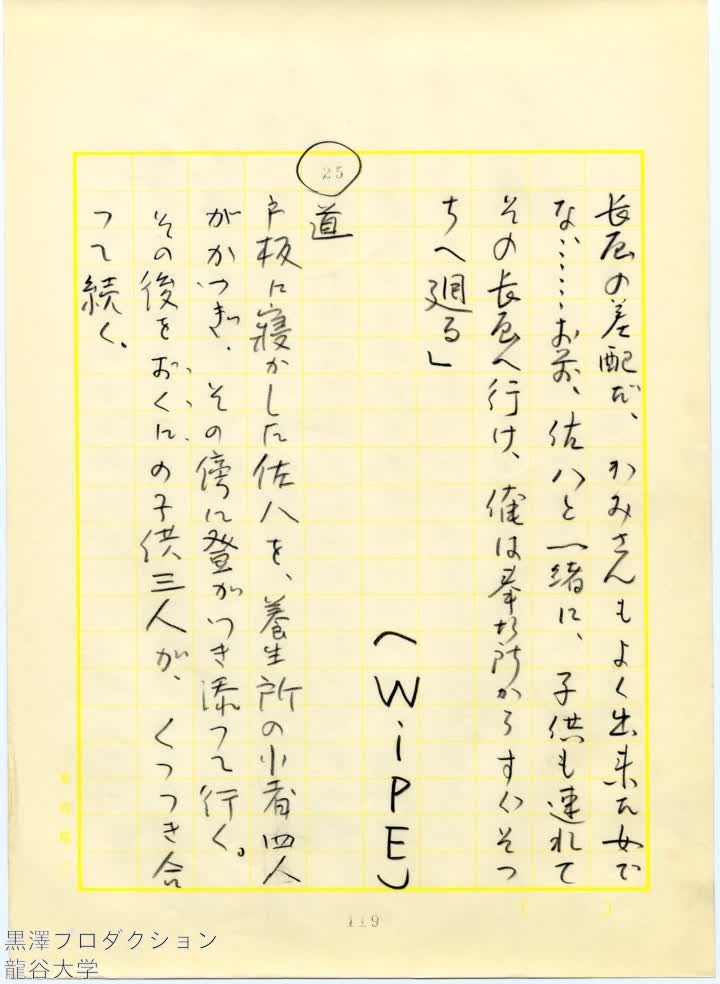 長屋の差配だ、かみさんもよく出来た女で
な……お前、佐八と一緒に、子供も連れて
その長屋へ行け、俺は奉行所からすぐそつ
ちへ廻る」
(WiPE)
25
道
戸板に寝かした佐八を、養生所の小者四人
がかつぎ、その傍に登がつき添つて行く。
その後をおくにの子供三人が、くつつき合
つて続く。
119
黒澤プロダクション
龍谷大学